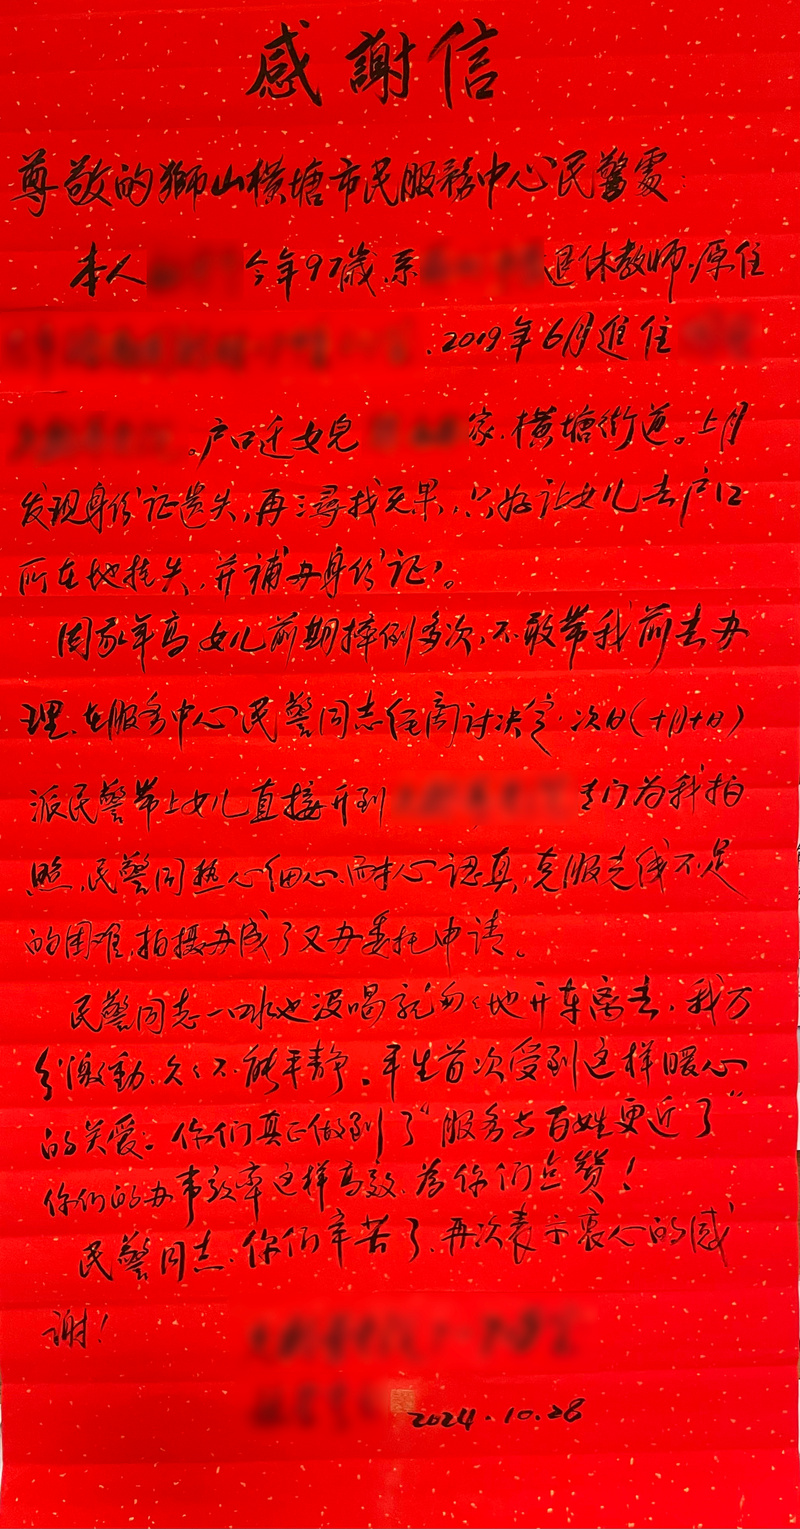 感謝信
尊敬的獅山横塘市民服務中心民警處：
本人 今年97歲,系 退休教師.原住
.2019年6月進住
。户口迁女兒 家.横塘街道。上月
发现身份证遗失,再三尋找无果,只好让女儿去户口
所在地挂失,并補办身份证。
因我年高 女儿前期摔倒多次,不敢带我前去办
理.在服务中心民警同志经商讨决定.次日(十月十日)
派民警带上女儿直接开到 专门为我拍
照,民警同 热心细心.耐心 认真,克服光线不足
的困难,拍摄办成了又办委托申请。
民警同志一口水也没喝就匆匆地开车离去,我万
分激動.久久不能平静。平生首次受到这样暖心
的关爱。你们真正做到了“服务与百姓更近了”
你们的办事效率这样高效.為你们点赞！
民警同志.你们辛苦了.再次表示衷心的感
谢！
2024.10.28